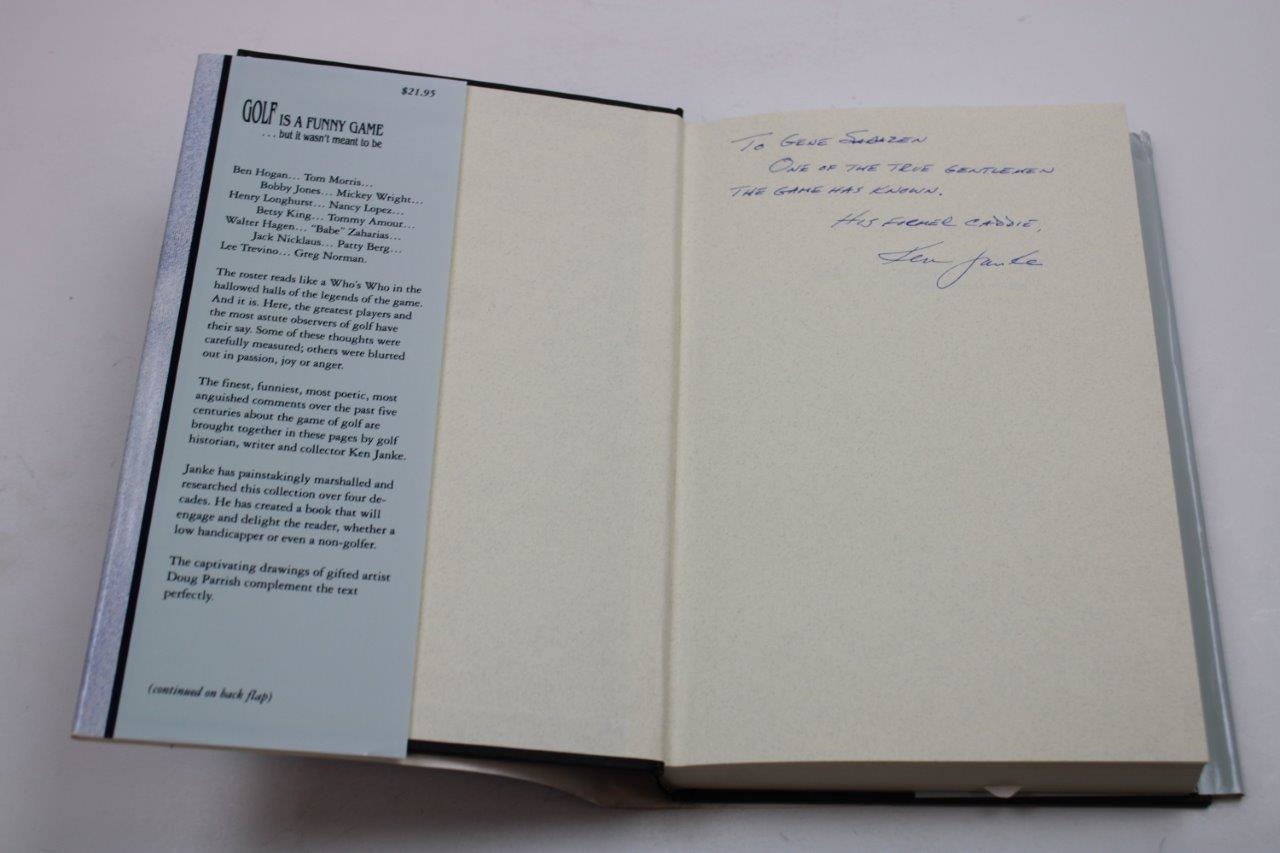 $21.95
GOLF IS A FUNNY GAME
. . . but it wasn't meant to be
Ben Hogan... Tom Morris...
Bobby Jones... Mickey Wright...
Henry Longhurst... Nancy Lopez...
Betsy King... Tommy Amour...
Walter Hagen... "Babe" Zaharias...
Jack Nicklaus... Patty Berg...
Lee Trevino... Greg Norman.
The roster reads like a Who's Who in the
hallowed halls of the legends of the game.
And it is. Here, the greatest players and
the most astute observers of golf have
their say. Some of these thoughts were
carefully measured; others were blurted
out in passion, joy or anger.
The finest, funniest, most poetic, most
anguished comments over the past five
centuries about the game of golf are
brought together in these pages by golf
historian, writer and collector Ken Janke.
Janke has painstakingly marshalled and
researched this collection over four de-
cades. He has created a book that will
engage and delight the reader, whether a
low handicapper or even a non-golfer.
The captivating drawings of gifted artist
Doug Parrish complement the text
perfectly.
(continued on back flap)
TO GENE SARAZEN
ONE OF THE TRUE GENTLEMEN
THE GAME HAS KNOWN.
HIS FORMER CADDIE,
Ken Janke